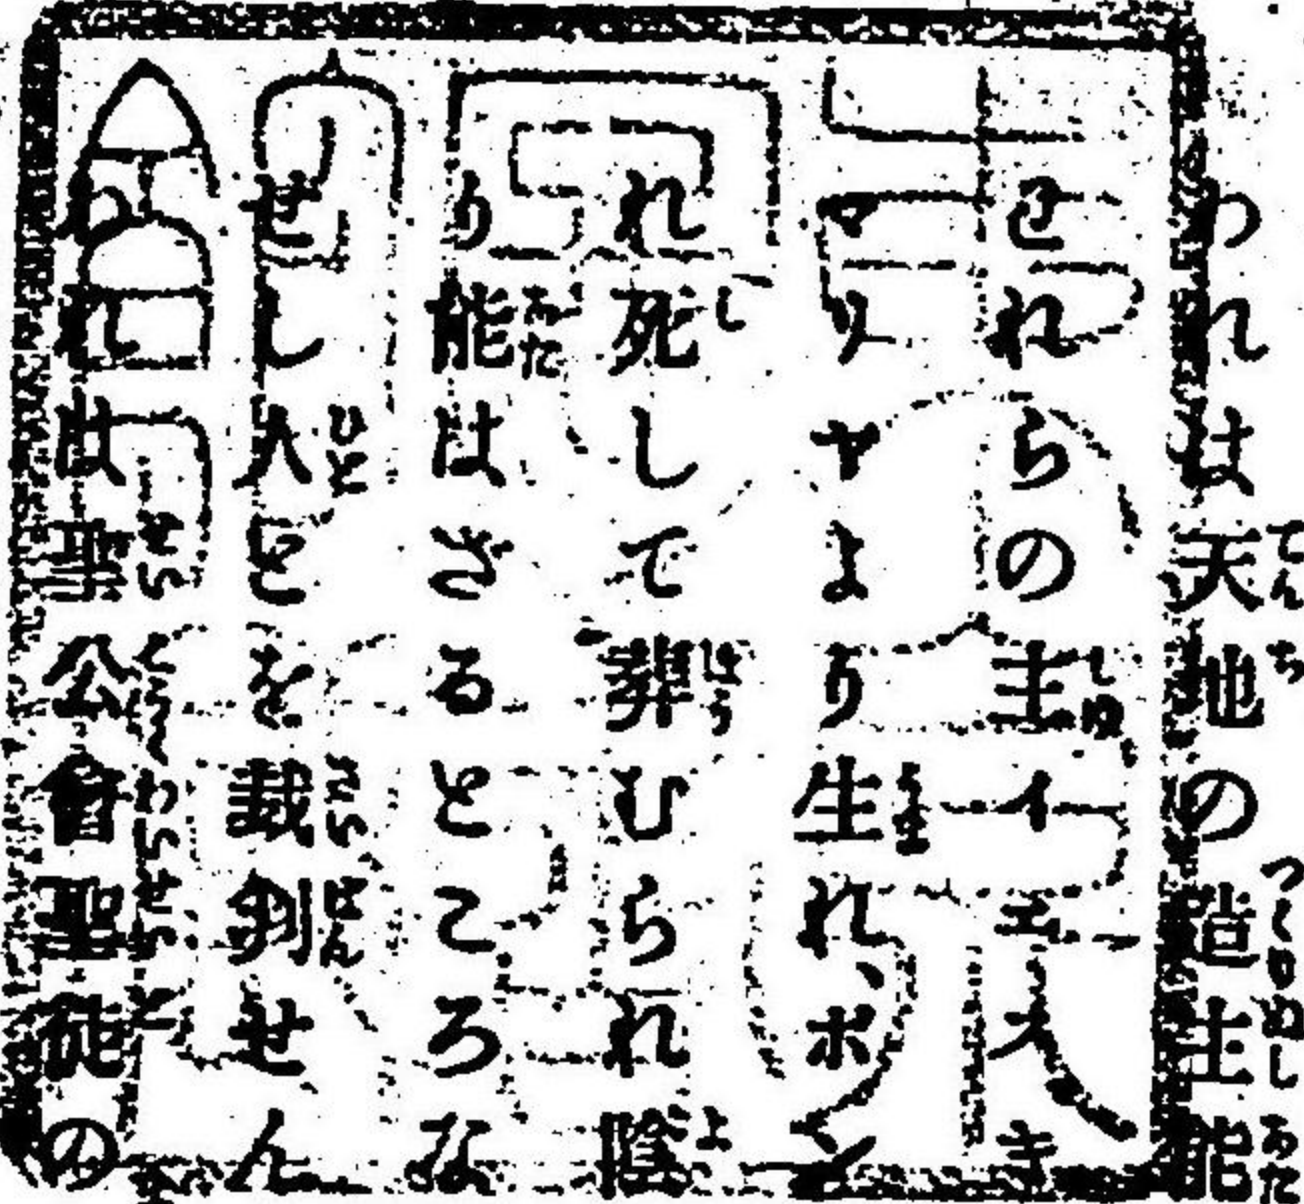 われは天地の造主能
せれらの主イエスき
マリヤより生れ、ポン
れ死して葬むられ陰
り能はざるところな
せし人とを裁判せん
われは聖公會聖徒の